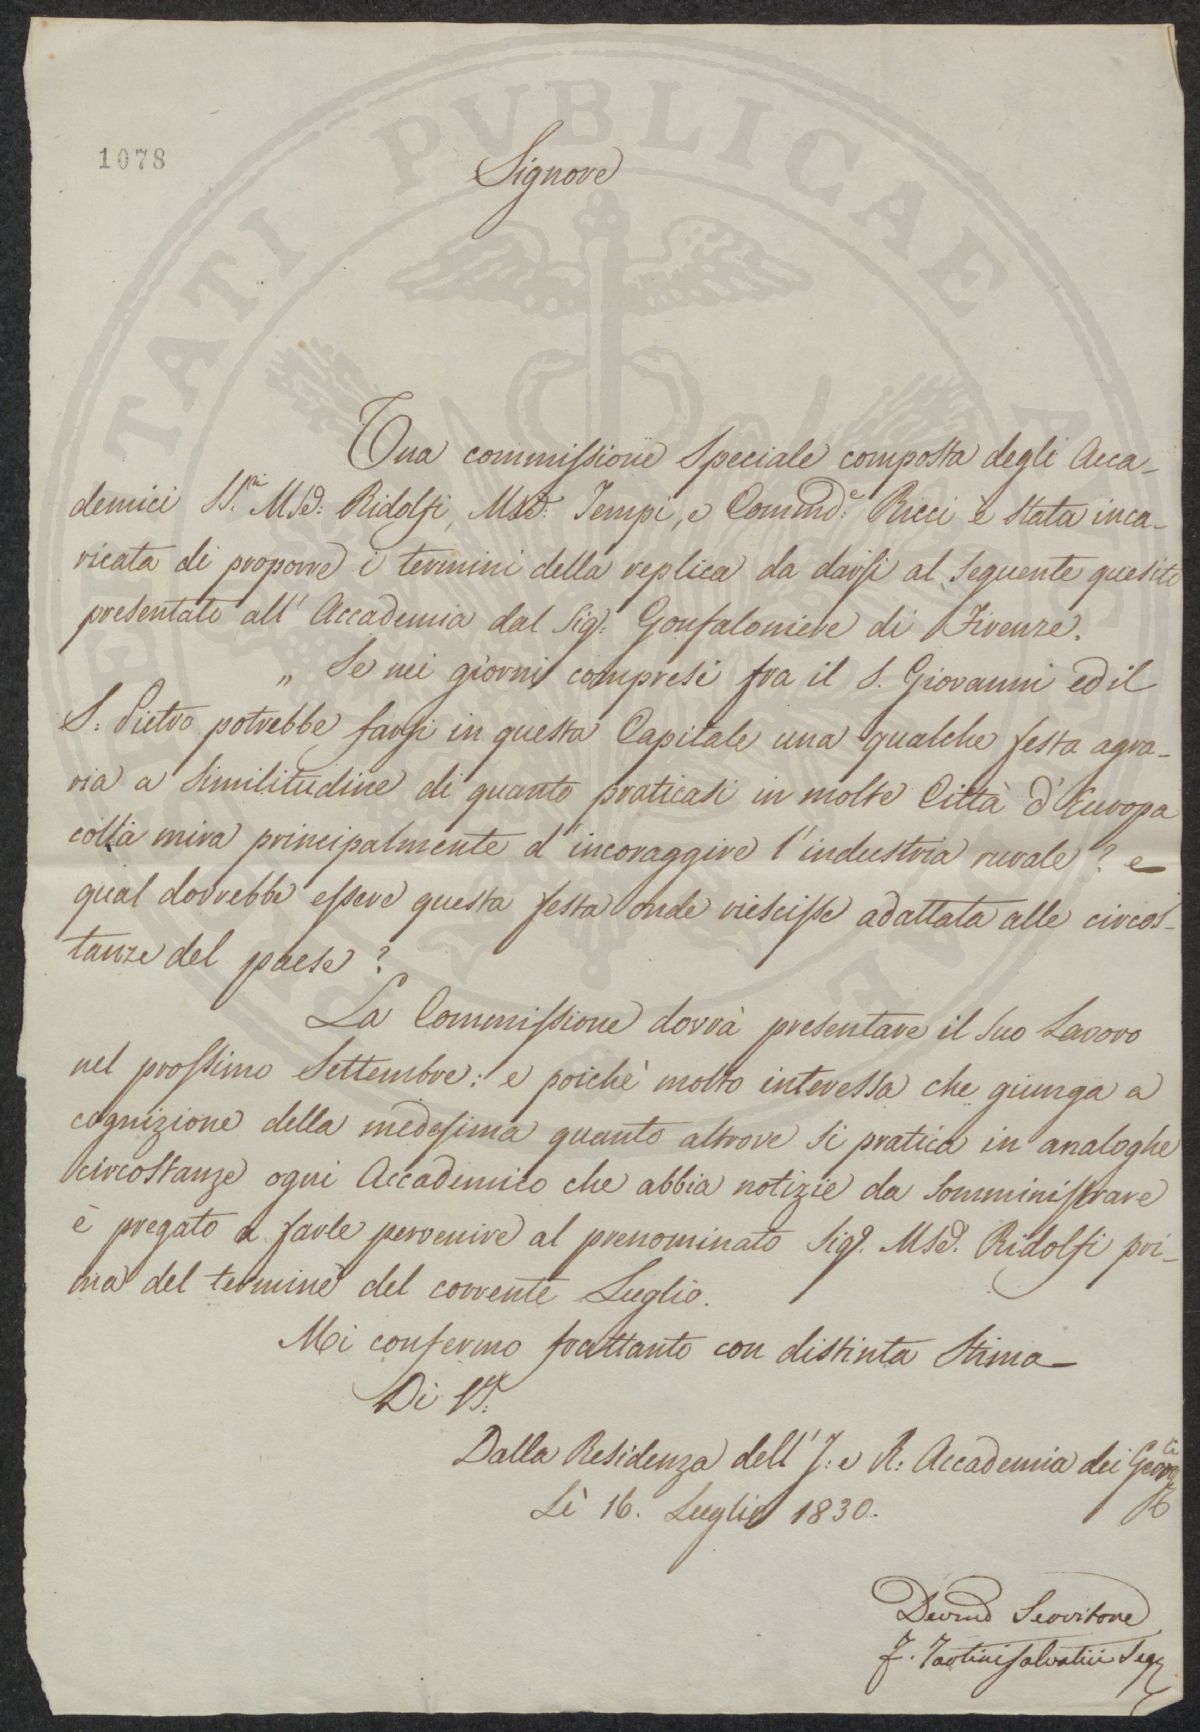 1078
Signore
Una commissione speciale composta degli Acca-
demici SS.ri Mse. Ridolfi, Mse: Tempi, e Commde: Ricci è stata inca-
ricata di proporre i termini della replica da darsi al seguente quesito
presentato all' Accademia dal Sig: Gonfaloniere di Firenze.
„ Se nei giorni compresi fra il S. Giovanni ed il
S: Pietro potrebbe farsi in questa Capitale una qualche festa agra-
ria a similitudine di quanto praticasi in molte Città d'Europa
colla mira principalmente d'incoraggire l'industria rurale? e
qual dovrebbe essere questa festa onde riescisse adattata alle circos-
tanze del paese?
La Commissione dovrà presentare il suo Lavoro
nel prossimo Settembre: e poichè molto interessa che giunga a
cognizione della medesima quanto altrove si pratica in analoghe
circostanze ogni Accademico che abbia notizie da somministrare
è pregato a farle pervenire al prenominato Sigr. Mse. Ridolfi pri-
ma del termine del corrente Luglio.
Mi confermo frattanto con distinta stima
Di VS:
Dalla Residenza dell' J: e R: Accademia dei Georgli
Lì 16. Luglio 1830.
Devmo Servitore
F. Tartini Salvatici Seg
PUBLICAE